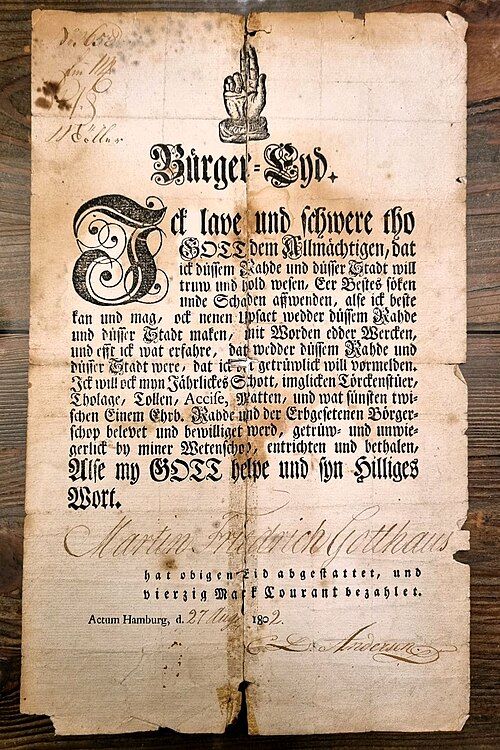 Bürger-Eyd.
Ick lave und schwere tho
GOTT dem Allmächtigen, dat
ick düssem Rahde und düsser Stadt will
truw und hold wesen, Eer Bestes söken
unde Schaden affwenden, alse ick beste
kan und mag, ock nenen Upsaet wedder düssem Rahde
und düsser Stadt maken, mit Worden edder Wercken,
und efft ick wat erfahre, dat wedder düssem Rahde und
düsser Stadt were, dat ick getrüwlick will vormelden.
Ick will ock myn Jährlickes Schott, imglicken Törckenstüer,
Tholage, Tollen, Accise, Matten, und wat sünsten twi-
schen Einem Ehrb. Rahde und der Erbgesetenen Börger-
schop belevet und bewilliget werd, getrüw- und unwie-
gerlick by miner Wetenschop, entrichten und bethalen,
Alse my GOTT helpe und syn Hilliges
Wort.
Martin Friedrich Gotthaus
hat obigen Eid abgestattet, und
vierzig Mark Courant bezahlet.
Actum Hamburg, d. 27 Aug 1802.
Andersen